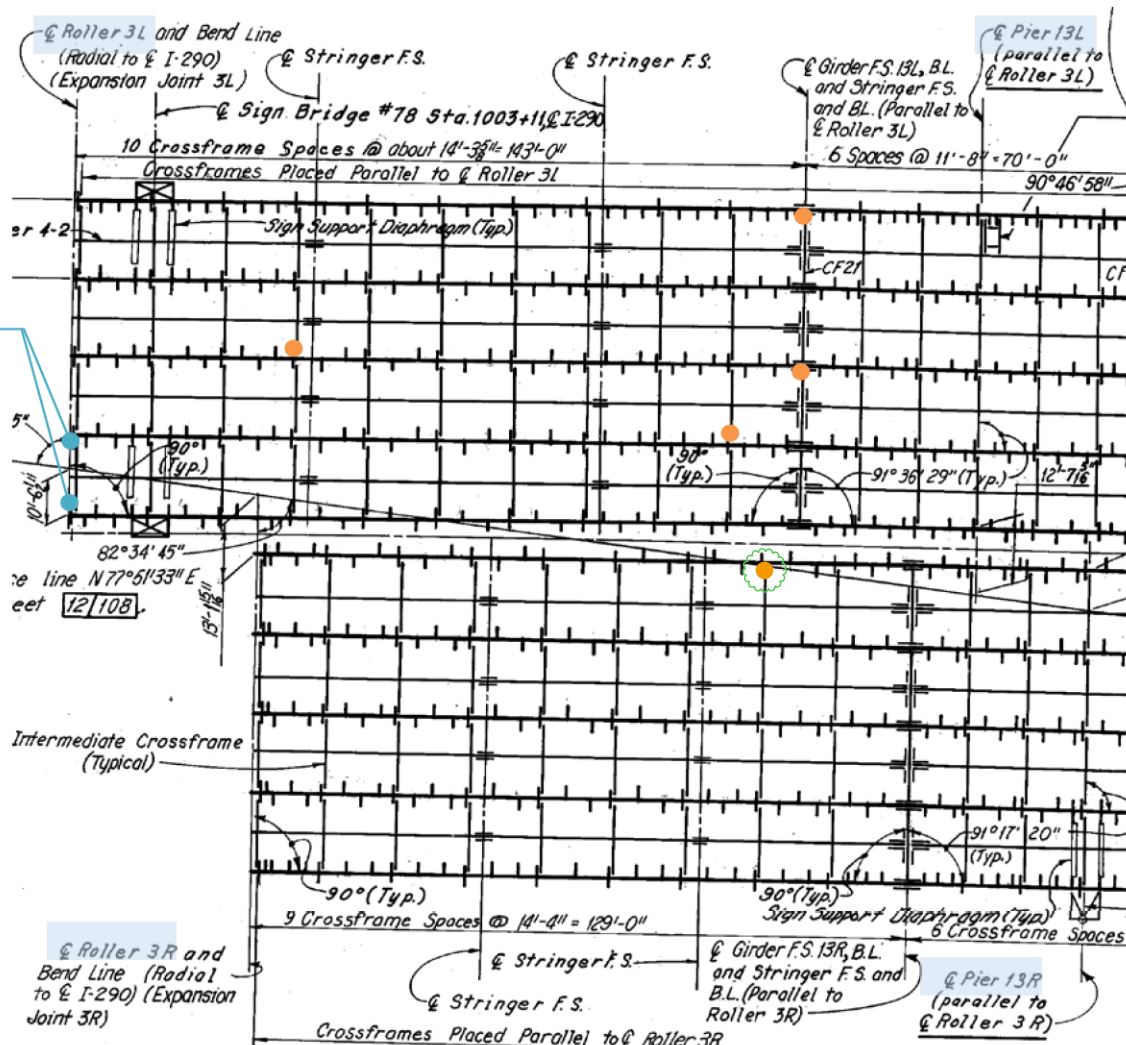 ℄ Roller 3L and Bend Line
(Radial to ℄ I-290)
(Expansion Joint 3L)
℄ Stringer F.S.
℄ Stringer F.S.
℄ Girder F.S. 13L, B.L.
and Stringer F.S.
and B.L. (Parallel to
℄ Roller 3L)
℄ Pier 13L
(parallel to
℄ Roller 3L)
℄ Sign Bridge #78 Sta. 1003+11, ℄ I-290
10 Crossframe Spaces @ about 14'-3 5/8" = 143'-0"
6 Spaces @ 11'-8" = 70'-0"
Crossframes Placed Parallel to ℄ Roller 3L
90°46'58"
er 4-2
Sign Support Diaphragm (Typ.)
CF21
CF
5"
90°
(Typ.)
90°
(Typ.)
91°36'29" (Typ.)
12'-7 5/16"
82°34'45"
ce line N77°51'33" E
eet 12/108.
Intermediate Crossframe
(Typical)
91°17'20"
(Typ.)
90° (Typ.)
90° (Typ.)
Sign Support Diaphragm (Typ)
9 Crossframe Spaces @ 14'-4" = 129'-0"
6 Crossframe Spaces
℄ Roller 3R and
Bend Line (Radial
to ℄ I-290) (Expansion
Joint 3R)
℄ Stringer F.S.
℄ Stringer F.S.
℄ Girder F.S. 13R, B.L.
and Stringer F.S. and
B.L. (Parallel to
Roller 3R)
℄ Pier 13R
(parallel to
℄ Roller 3R)
Crossframes Placed Parallel to ℄ Roller 3R